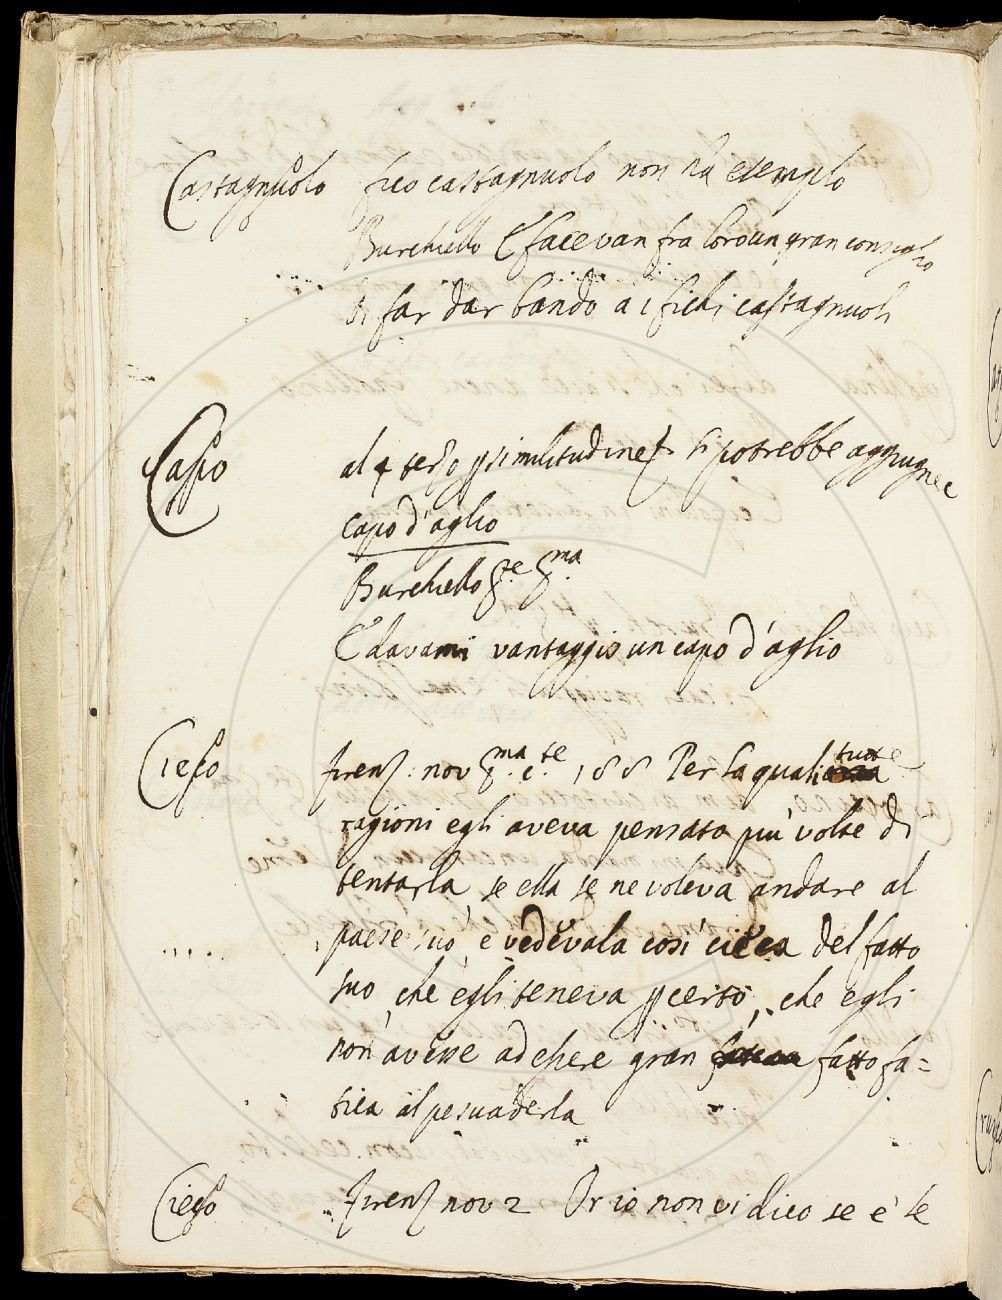 Castagnuolo fico castagnuolo non ha esemplo
Burchiello E facevan fra loro un gran consiglio
di far dar bando a i fichi castagnuoli
Capo al § terzo p similitudine si potrebbe aggiugnere
capo d'aglio
Burchiello
E davami vantaggio un capo d'aglio
Cieco firenz: nov te 188 Per la quali tutte
ragioni egli aveva pensato più volte di
tentarla, se ella se ne voleva andare al
paese suo, e vedevala così cieca del fatto
suo, che egli teneva p certo, che egli
non avesse ad essere gran fatto fa=
tica al pesuaderla
Cieco firenz nov 2 Or io non vi dico se e' le